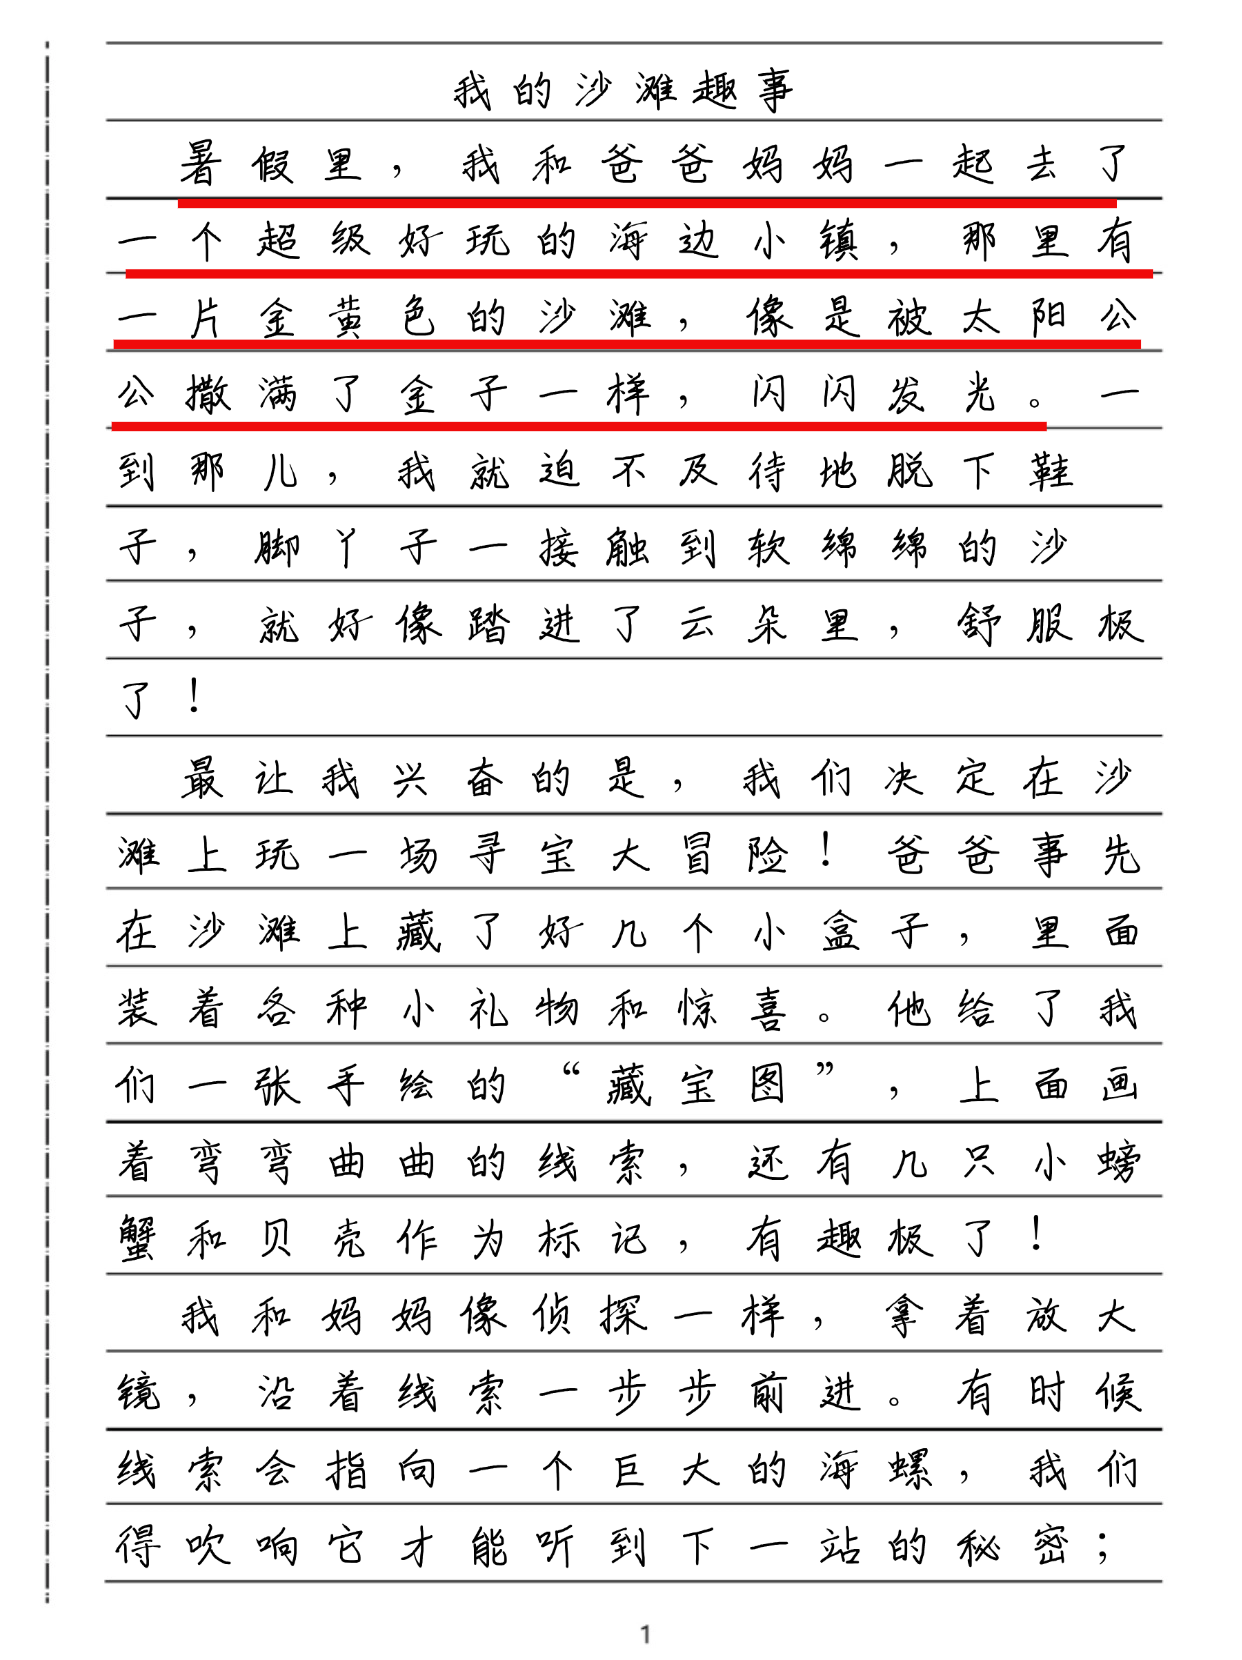 我的沙滩趣事
暑假里，我和爸爸妈妈一起去了
一个超级好玩的海边小镇，那里有
一片金黄色的沙滩，像是被太阳公
公撒满了金子一样，闪闪发光。一
到那儿，我就迫不及待地脱下鞋
子，脚丫子一接触到软绵绵的沙
子，就好像踏进了云朵里，舒服极
了！
最让我兴奋的是，我们决定在沙
滩上玩一场寻宝大冒险！爸爸事先
在沙滩上藏了好几个小盒子，里面
装着各种小礼物和惊喜。他给了我
们一张手绘的“藏宝图”，上面画
着弯弯曲曲的线索，还有几只小螃
蟹和贝壳作为标记，有趣极了！
我和妈妈像侦探一样，拿着放大
镜，沿着线索一步步前进。有时候
线索会指向一个巨大的海螺，我们
得吹响它才能听到下一站的秘密；
1